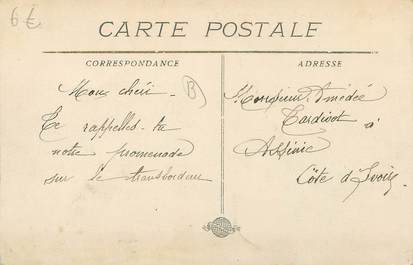 6 €
CARTE POSTALE
CORRESPONDANCE
ADRESSE
Mon chéri
B
Te rappelles-tu
notre promenade
sur le transbordeur
Monsieur Amédée
Tardivot
à
Assinie
Côte d'Ivoire